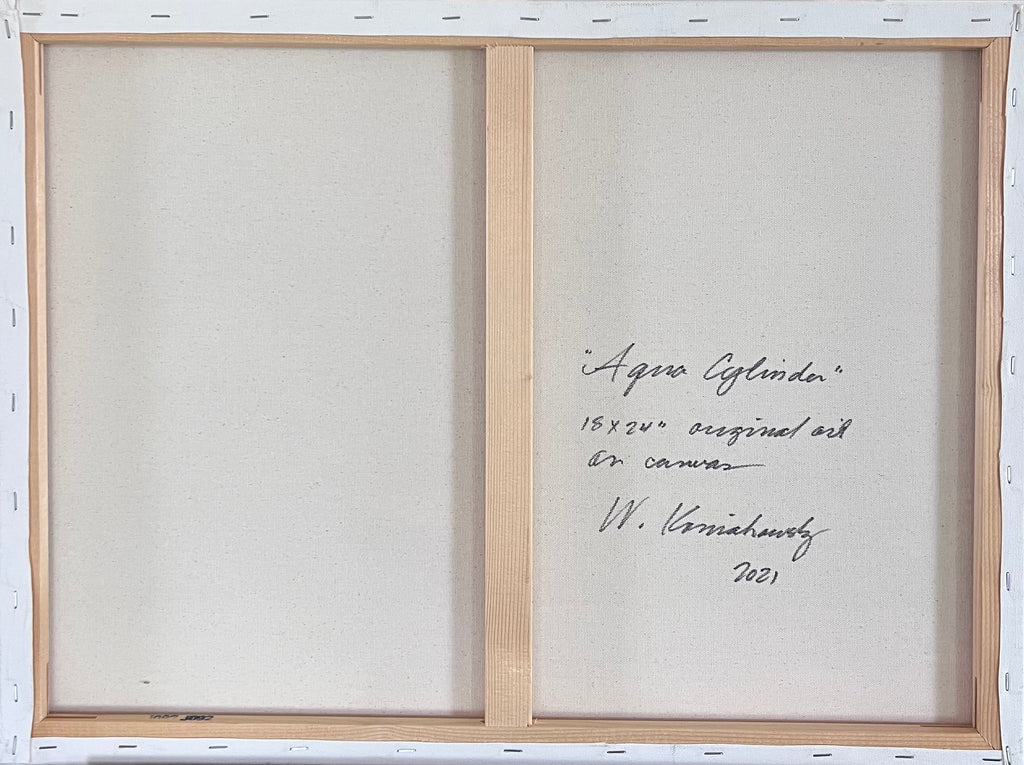 "Aqua Cylinder"
18 x 24" original oil
on canvas
W.
2021